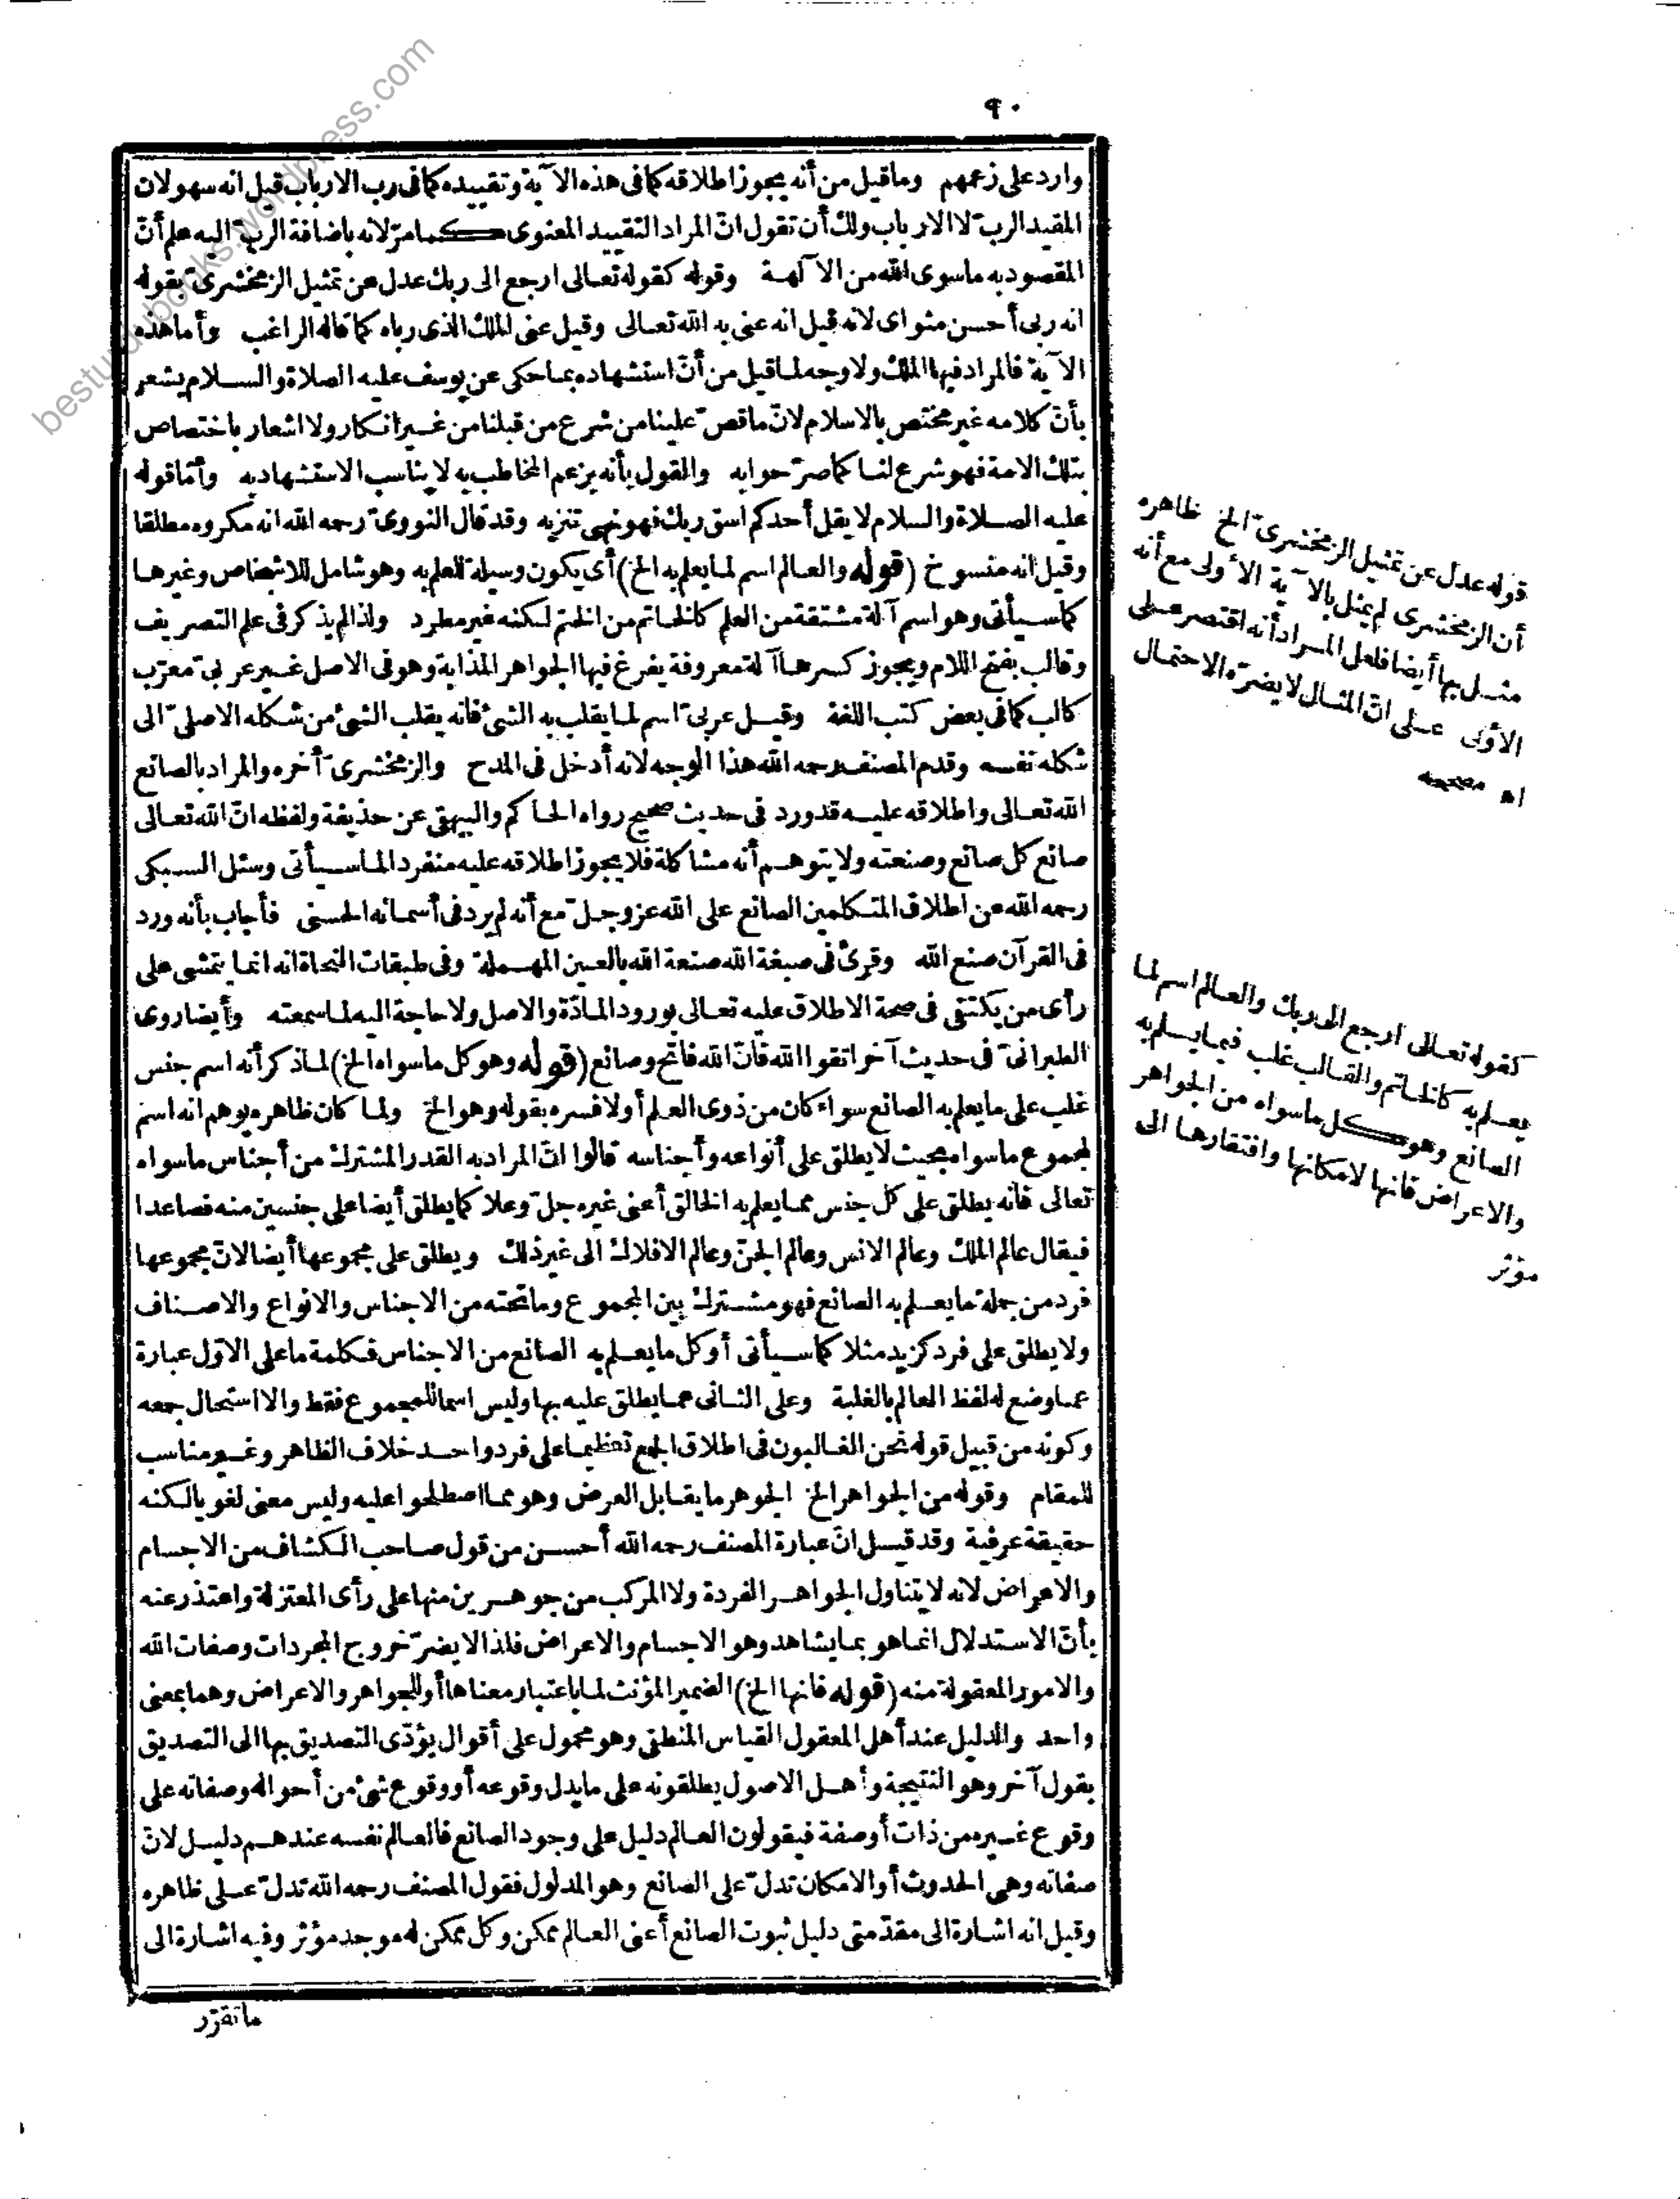 ٩٠
وارد على زعمهم وما قيل من أنه يجوز اطلاقه كما فى هذه الآية وتقييده كما فى رب الارباب قيل انه سهو لان
المقيد الربّ لا الارباب ولك أن تقول انّ المراد التقييد المعنوى كما مرّ لانه باضافة الربّ اليه علم أنّ
المقصود به ما سوى الله من الآلهة وقوله كقوله تعالى ارجع الى ربك عدل عن تمثيل الزمخشرىّ بقوله
انه ربى أحسن مثواى لانه قيل انه عنى به الله تعالى وقيل عنى الملك الذى رباه كما قاله الراغب وأما هذه
الآية فالمراد فيها الملك ولا وجه لما قيل من أنّ استشهاده بما حكى عن يوسف عليه الصلاة والسلام يشعر
بأنّ كلامه غير مختص بالاسلام لانّ ما قصّ علينا من شرع من قبلنا من غير انكار ولا اشعار باختصاص
بتلك الامة فهو شرع لنا كما صرّحوا به والقول بأنه بزعم المخاطب به لا يناسب الاستشهاد به وأمّا قوله
عليه الصلاة والسلام لا يقل أحدكم اسق ربك فهو نهى تنزيه وقد قال النووىّ رحمه الله انه مكروه مطلقا
وقيل انه منسوخ (قوله والعالم اسم لما يعلم به الخ) أى يكون وسيلة للعلم به وهو شامل للاشخاص وغيرها
كما سيأتى وهو اسم آلة مشتقة من العلم كالخاتم من الختم لكنه غير مطرد ولذا لم يذكر فى علم التصريف
وقالب بفتح اللام ويجوز كسرها آلة معروفة يفرغ فيها الجواهر المذابة وهو فى الاصل غير عربىّ معرّب
كالب كما فى بعض كتب اللغة وقيل عربىّ اسم لما يقلب به الشئ فانه يقلب الشئ من شكله الاصلىّ الى
شكله نفسه وقدم المصنف رحمه الله هذا الوجه لانه أدخل فى المدح والزمخشرىّ أخره والمراد بالصانع
الله تعالى واطلاقه عليه قد ورد فى حديث صحيح رواه الحاكم والبيهقى عن حذيفة ولفظه انّ الله تعالى
صانع كل صانع وصنعته ولا يتوهم أنه مشاكلة فلا يجوز اطلاقه عليه منفردا لما سيأتى وسئل السبكى
رحمه الله عن اطلاق المتكلمين الصانع على الله عز وجلّ مع أنه لم يرد فى أسمائه الحسنى فأجاب بأنه ورد
فى القرآن صنع الله وقرئ فى صبغة الله صنعة الله بالعين المهملة وفى طبقات النحاة انه انما يتمشى على
رأى من يكتفى فى صحة الاطلاق عليه تعالى بورود المادّة والاصل ولا حاجة اليه لما سمعته وأيضا روى
الطبرانىّ فى حديث آخر اتقوا الله فانّ الله فاتح وصانع (قوله وهو كل ما سواه الخ) لما ذكر أنه اسم جنس
غلب على ما يعلم به الصانع سواء كان من ذوى العلم أولا فسره بقوله وهو الخ ولما كان ظاهره يوهم انه اسم
لمجموع ما سواه بحيث لا يطلق على أنواعه وأجناسه قالوا انّ المراد به القدر المشترك من أجناس ما سواه
تعالى فانه يطلق على كل جنس مما يعلم به الخالق أعنى غيره جلّ وعلا كما يطلق أيضا على جنسين منه فصاعدا
فيقال عالم الملك وعالم الانس وعالم الجنّ وعالم الافلاك الى غير ذلك ويطلق على مجموعها أيضا لانّ مجموعها
فرد من جملة ما يعلم به الصانع فهو مشترك بين المجموع وما تحته من الاجناس والانواع والاصناف
ولا يطلق على فرد كزيد مثلا كما سيأتى أو كل ما يعلم به الصانع من الاجناس فكلمة ما على الاوّل عبارة
عما وضع له لفظ العالم بالغلبة وعلى الثانى عما يطلق عليه بها وليس اسما للمجموع فقط والا استحال جمعه
وكونه من قبيل قوله نحن الغالبون فى اطلاق الجمع تعظيما على فرد واحد خلاف الظاهر وغير مناسب
للمقام وقوله من الجواهر الخ الجوهر ما يقابل العرض وهو مما اصطلحوا عليه وليس معنى لغويا لكنه
حقيقة عرفية وقد قيل انّ عبارة المصنف رحمه الله أحسن من قول صاحب الكشاف من الاجسام
والاعراض لانه لا يتناول الجواهر الفردة ولا المركب من جوهرين منها على رأى المعتزلة واعتذر عنه
بأنّ الاستدلال انما هو بما يشاهد وهو الاجسام والاعراض فلذا لا يضرّ خروج المجردات وصفات الله
والامور المعقولة منه (قوله فانها الخ) الضمير المؤنث لما باعتبار معناها أو للجواهر والاعراض وهما بمعنى
واحد والدليل عند أهل المعقول القياس المنطقى وهو محمول على أقوال يؤدّى التصديق بها الى التصديق
بقول آخر وهو النتيجة وأهل الاصول يطلقونه على ما يدل وقوعه أو وقوع شئ من أحواله وصفاته على
وقوع غيره من ذات أو صفة فيقولون العالم دليل على وجود الصانع فالعالم نفسه عندهم دليل لانّ
صفاته وهى الحدوث أو الامكان تدلّ على الصانع وهو المدلول فقول المصنف رحمه الله تدلّ على ظاهره
وقيل انه اشارة الى مقدّمتى دليل ثبوت الصانع أعنى العالم ممكن وكل ممكن له موجد مؤثر وفيه اشارة الى
ما تقرّر
قوله عدل عن تمثيل الزمخشرىّ الخ ظاهره
أن الزمخشرى لم يمثل بالآية الأولى مع أنه
مثل بها أيضا فلعل المراد أنه اقتصر على
الأولى على انّ المثال لا يضرّه الاحتمال
اه مصححه
كقوله تعالى ارجع الى ربك والعالم اسم لما
يعلم به كالخاتم والقالب غلب فيما يعلم به
الصانع وهو كل ما سواه من الجواهر
والاعراض فانها لامكانها وافتقارها الى
مؤثر
besturdubooks.wordpress.com